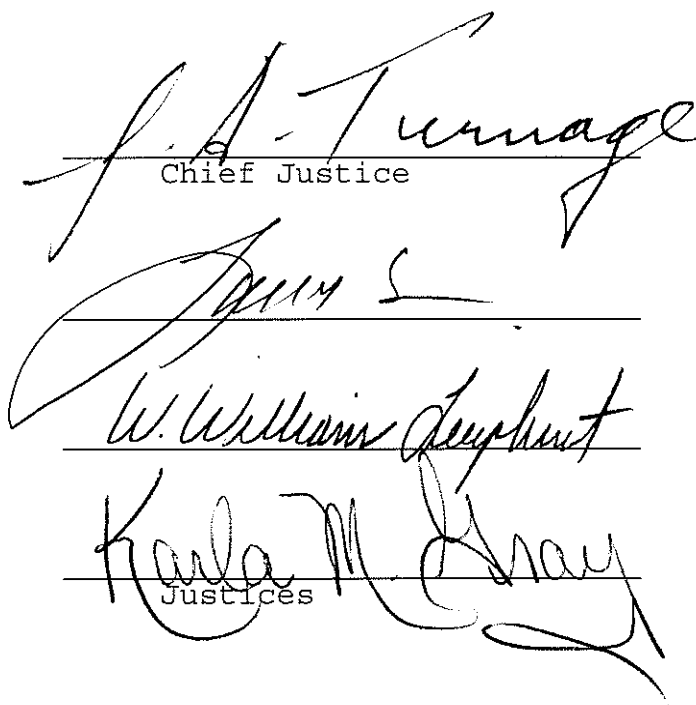 J. A. Turnage
Chief Justice
W. William Leaphart
Karla M. Gray
Justices